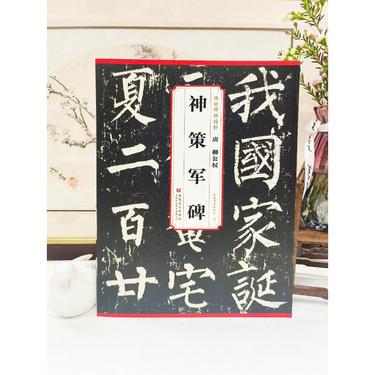 我國家誕
宅
夏二百廿
唐 柳公权
神策军碑